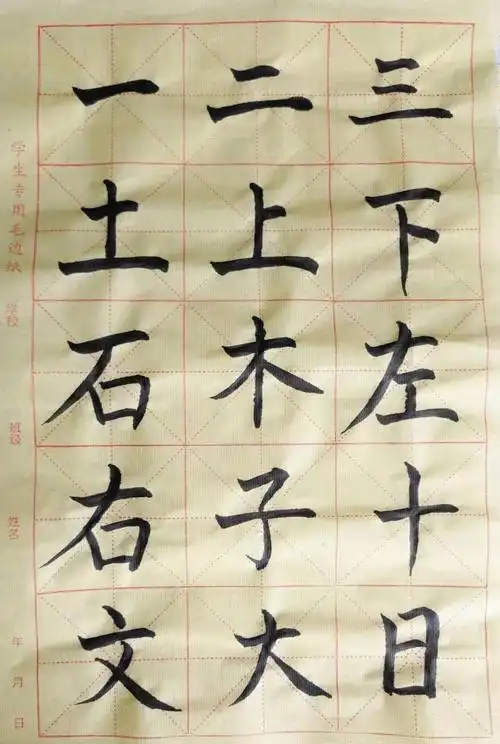 一二三
土上下
石木左
右子十
文大日
学生专用毛边纸
学校
班级
姓名
年月日